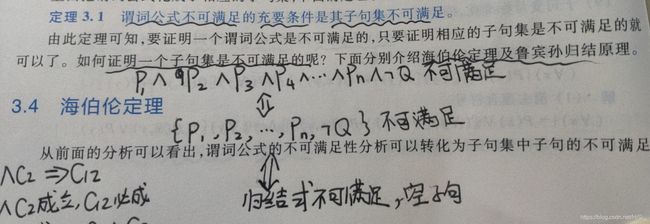 定理 3.1 谓词公式不可满足的充要条件是其子句集不可满足。
由此定理可知,要证明一个谓词公式是不可满足的,只要证明相应的子句集是不可满足的就
可以了。如何证明一个子句集是不可满足的呢?下面分别介绍海伯伦定理及鲁宾孙归结原理。
P₁∧P₂∧P₃∧P₄∧…∧Pn∧¬Q 不可满足
3.4 海伯伦定理
{P₁,P₂,…,Pn,¬Q} 不可满足
从前面的分析可以看出,谓词公式的不可满足性分析可以转化为子句集中子句的不可满足
∧C₂⇒C₁₂
∧C₂成立,C₁₂必成
归结式不可满足,空子句
https://blog.csdn.net/